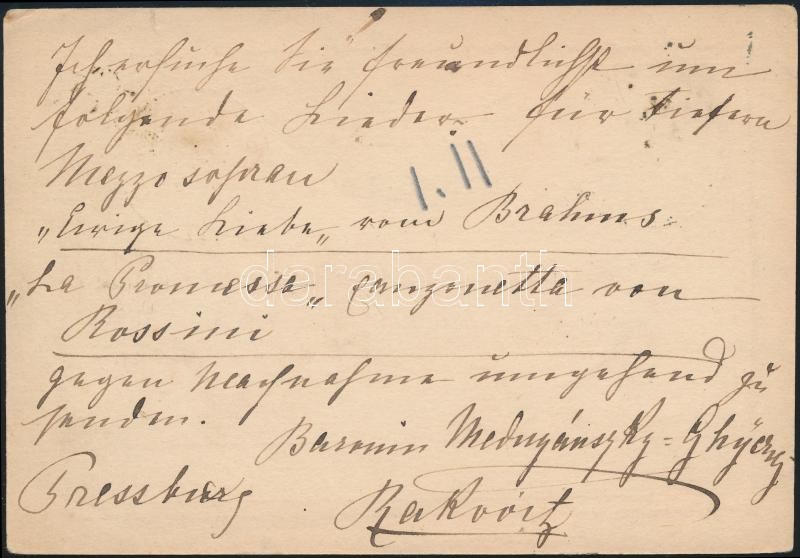 Ich ersuche Sie freundlichst um
folgende Lieder für tiefern
Mezzosopran
1.11
„Ewige Liebe„ vom Brahms
darabanth
„La Promessa„ Canzonetta von
Rossini
gegen Nachnahme umgehend zu
senden.
Baronin Mednyánszky=Ghyczy
Pressburg
Rakovitz